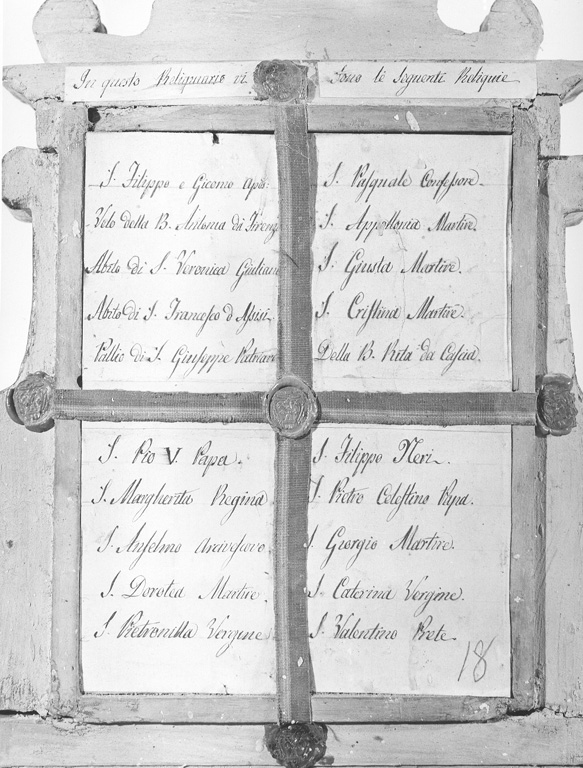 In questo Reliquiario vi Sono le Seguenti Reliquie
S. Filippo e Gicomo Apo:
Velo della B. Antonia da Firenz
Abito di S. Veronica Giuliani
Abito di S. Francesco d Assisi
Pallio di S. Giuseppe Patriarc
S. Pasquale Confessore.
S. Appollonia Martire.
S. Giusta Martire.
S. Cristina Martire.
Della B. Rita da Cascia.
S. Pio V. Papa.
S. Margherita Regina
S. Anselmo Arcivesovo
S. Dorotea Martire
S. Petronilla Vergine
S. Filippo Neri.
S. Pietro Celestino Papa.
S. Giorgio Martire.
S. Caterina Vergine.
S. Valentino Prete
18